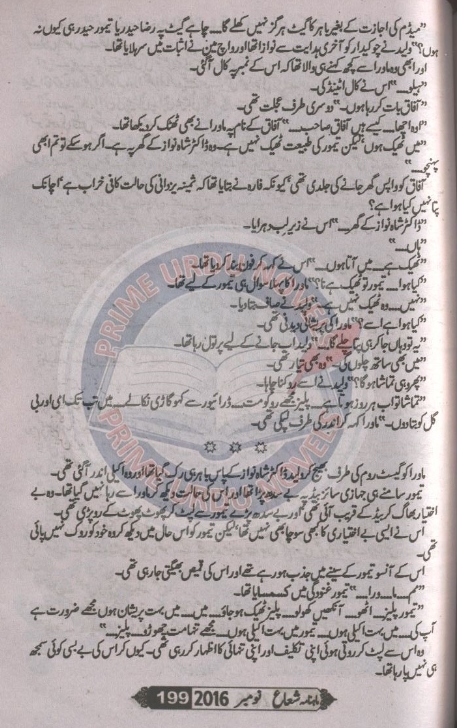 "میڈم کی اجازت کے بغیر باہر کا گیٹ ہرگز نہیں کھلے گا۔ چاہے گیٹ پہ رضا حیدر یا تیمور حیدر ہی کیوں نہ
ہوں؟" ولید نے چوکیدار کو آخری ہدایت سے نوازا تھا اور واچ مین نے اثبات میں سر ہلایا تھا۔
اور ابھی وہ ماورا سے کچھ کہنے ہی والا تھا کہ اس کے نمبر پہ کال آ گئی۔
"ہیلو۔" اس نے کال اٹینڈ کی۔
"آفاق بات کر رہا ہوں۔" دوسری طرف عجلت تھی۔
"اوہ اچھا۔ کیسے ہیں آفاق صاحب۔" آفاق کے نام پہ ماورا نے بھی ٹھٹک کر دیکھا تھا۔
"میں ٹھیک ہوں لیکن تیمور کی طبیعت ٹھیک نہیں ہے۔ وہ ڈاکٹر شاہ نواز کے گھر پہ ہے۔ اگر ہو سکے تو تم ابھی
پہنچو۔"
آفاق کو واپس گھر جانے کی جلدی تھی کیونکہ فارہ نے بتایا تھا کہ ثمینہ یزدانی کی حالت کافی خراب ہے اچانک
پتا نہیں کیا ہوا ہے؟
"ڈاکٹر شاہ نواز کے گھر۔" اس نے زیر لب دہرایا۔
"ہاں۔"
"ٹھیک ہے۔ میں آتا ہوں۔" اس نے کہہ کر فون بند کر دیا تھا۔
"کیا ہوا۔ تیمور تو ٹھیک ہے نا؟" ماورا کا پہلا سوال ہی تیمور کے لیے تھا۔
"نہیں۔ وہ ٹھیک نہیں ہے۔" ولید نے صاف بتا دیا۔
"کیا ہوا ہے اسے؟" ماورا کی پریشانی دیدنی تھی۔
"یہ تو وہاں جا کر ہی پتا چلے گا۔" ولید اب جانے کے لیے پر تول رہا تھا۔
"میں بھی ساتھ چلوں گی۔" وہ بھی تیار تھی۔
"پھر وہی تماشا ہو گا؟" ولید نے اسے روکنا چاہا۔
"تماشا تو اب ہر روز ہونا ہے۔ پلیز مجھے روکو مت۔ ڈرائیور سے کہو گاڑی نکالے۔ میں تب تک ای اور بی
گل کو بتا دوں۔" ماورا کہہ کر اندر کی طرف لپکی تھی۔
* * *
ماورا کو گیسٹ روم کی طرف بھیج کر ولید ڈاکٹر شاہ نواز کے پاس باہر ہی رک گیا تھا اور وہ اکیلی اندر آ گئی تھی۔
تیمور سامنے ہی جہازی سائز بیڈ پہ بے سدھ پڑا تھا اور اس کی حالت دیکھ کر ماورا سے رہا نہیں گیا تھا۔ وہ بے
اختیار بھاگ کر بیڈ کے قریب آئی تھی اور بے سدھ پڑے تیمور سے لپٹ کر پھوٹ پھوٹ کے رو پڑی تھی۔
اس نے ایسی بے اختیاری کا کبھی سوچا بھی نہیں تھا لیکن تیمور کو اس حال میں دیکھ کر وہ خود کو روک نہیں پائی
تھی۔
اس کے آنسو تیمور کے سینے میں جذب ہو رہے تھے اور اس کی قمیص بھیگتی جا رہی تھی۔
"مم۔ ما۔ ورا۔" تیمور غنودگی میں کسمسایا تھا۔
"تیمور پلیز۔ اٹھو۔ آنکھیں کھولو۔ پلیز ٹھیک ہو جاؤ۔ میں۔ میں بہت پریشان ہوں مجھے ضرورت ہے
آپ کی۔ میں بہت اکیلی ہوں۔ تیمور میں بہت اکیلی ہوں۔ مجھے تنہا مت چھوڑو۔ پلیز۔"
وہ اس سے لپٹ کر روتی ہوئی اپنی تکلیف اور اپنی تنہائی کا اظہار کر رہی تھی۔ کیوں کر اس کی بے بسی کوئی سمجھ
ہی نہیں پا رہا تھا۔
ماہنامہ شعاع نومبر 2016 199
PRIME URDU NOVELS
PRIME URDU NOVELS